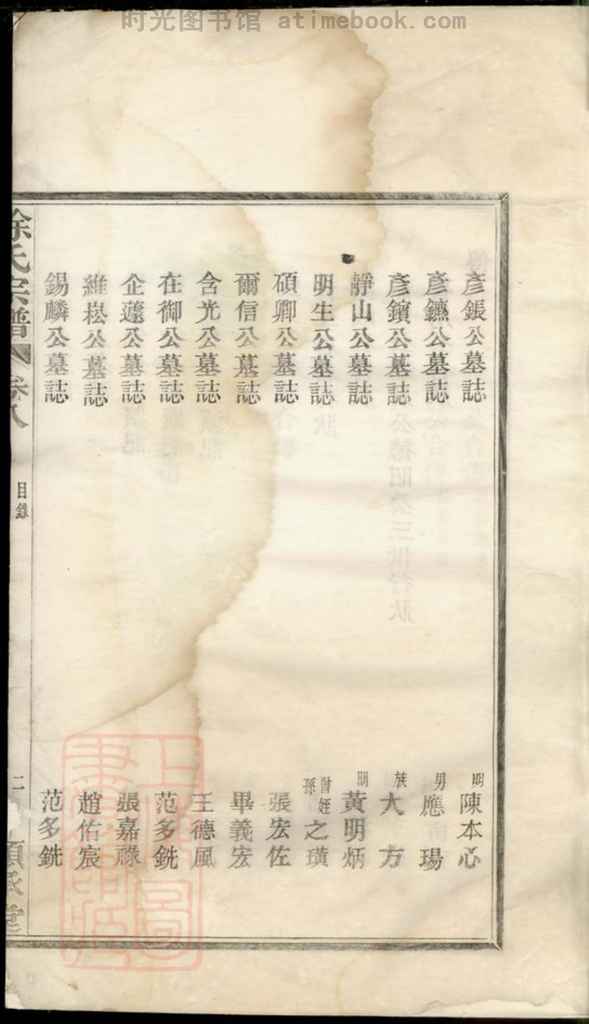 时光图书馆 atimebook.com
彥鋹公墓誌 明 陳本心
彥鑣公墓誌 男 應瑒
彥鑌公墓誌 族 大方
靜山公墓誌 明 黃明炳
明生公墓誌 孫 之璜
碩卿公墓誌 張宏佐
爾信公墓誌 畢義宏
含光公墓誌 王德風
在御公墓誌 范多銑
企蘧公墓誌 張嘉祿
維崧公墓誌 趙佑宸
錫麟公墓誌 范多銑
徐氏宗譜 卷八 目錄 二